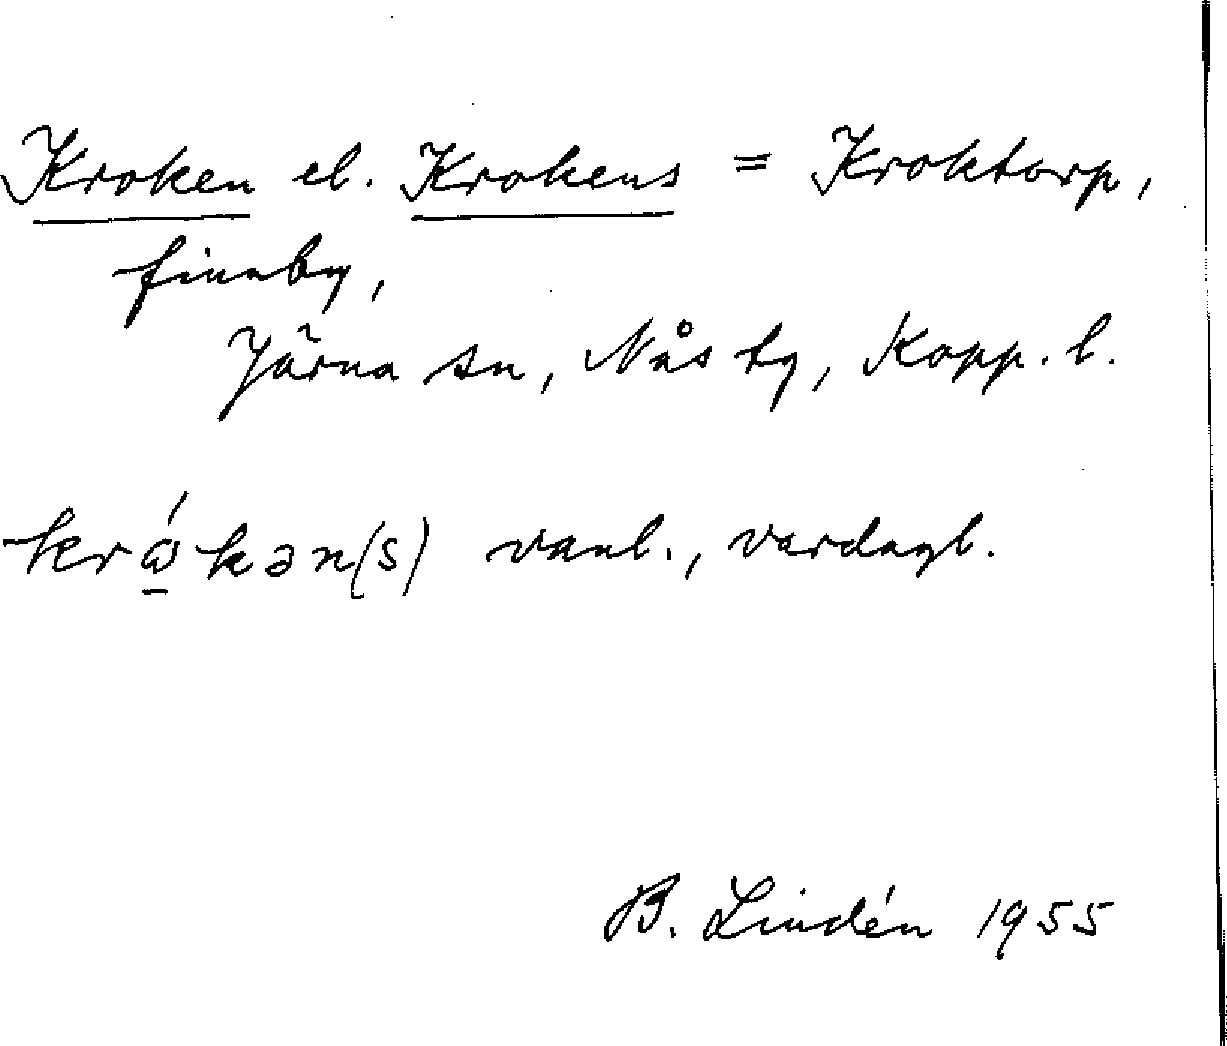 Kroken el. Krokens = Kroktorp,
finnby,
Järna sn, Nås tg, Kopp. l.
krώ̱kən(s) vanl., vardagl.
B. Lindén 1955